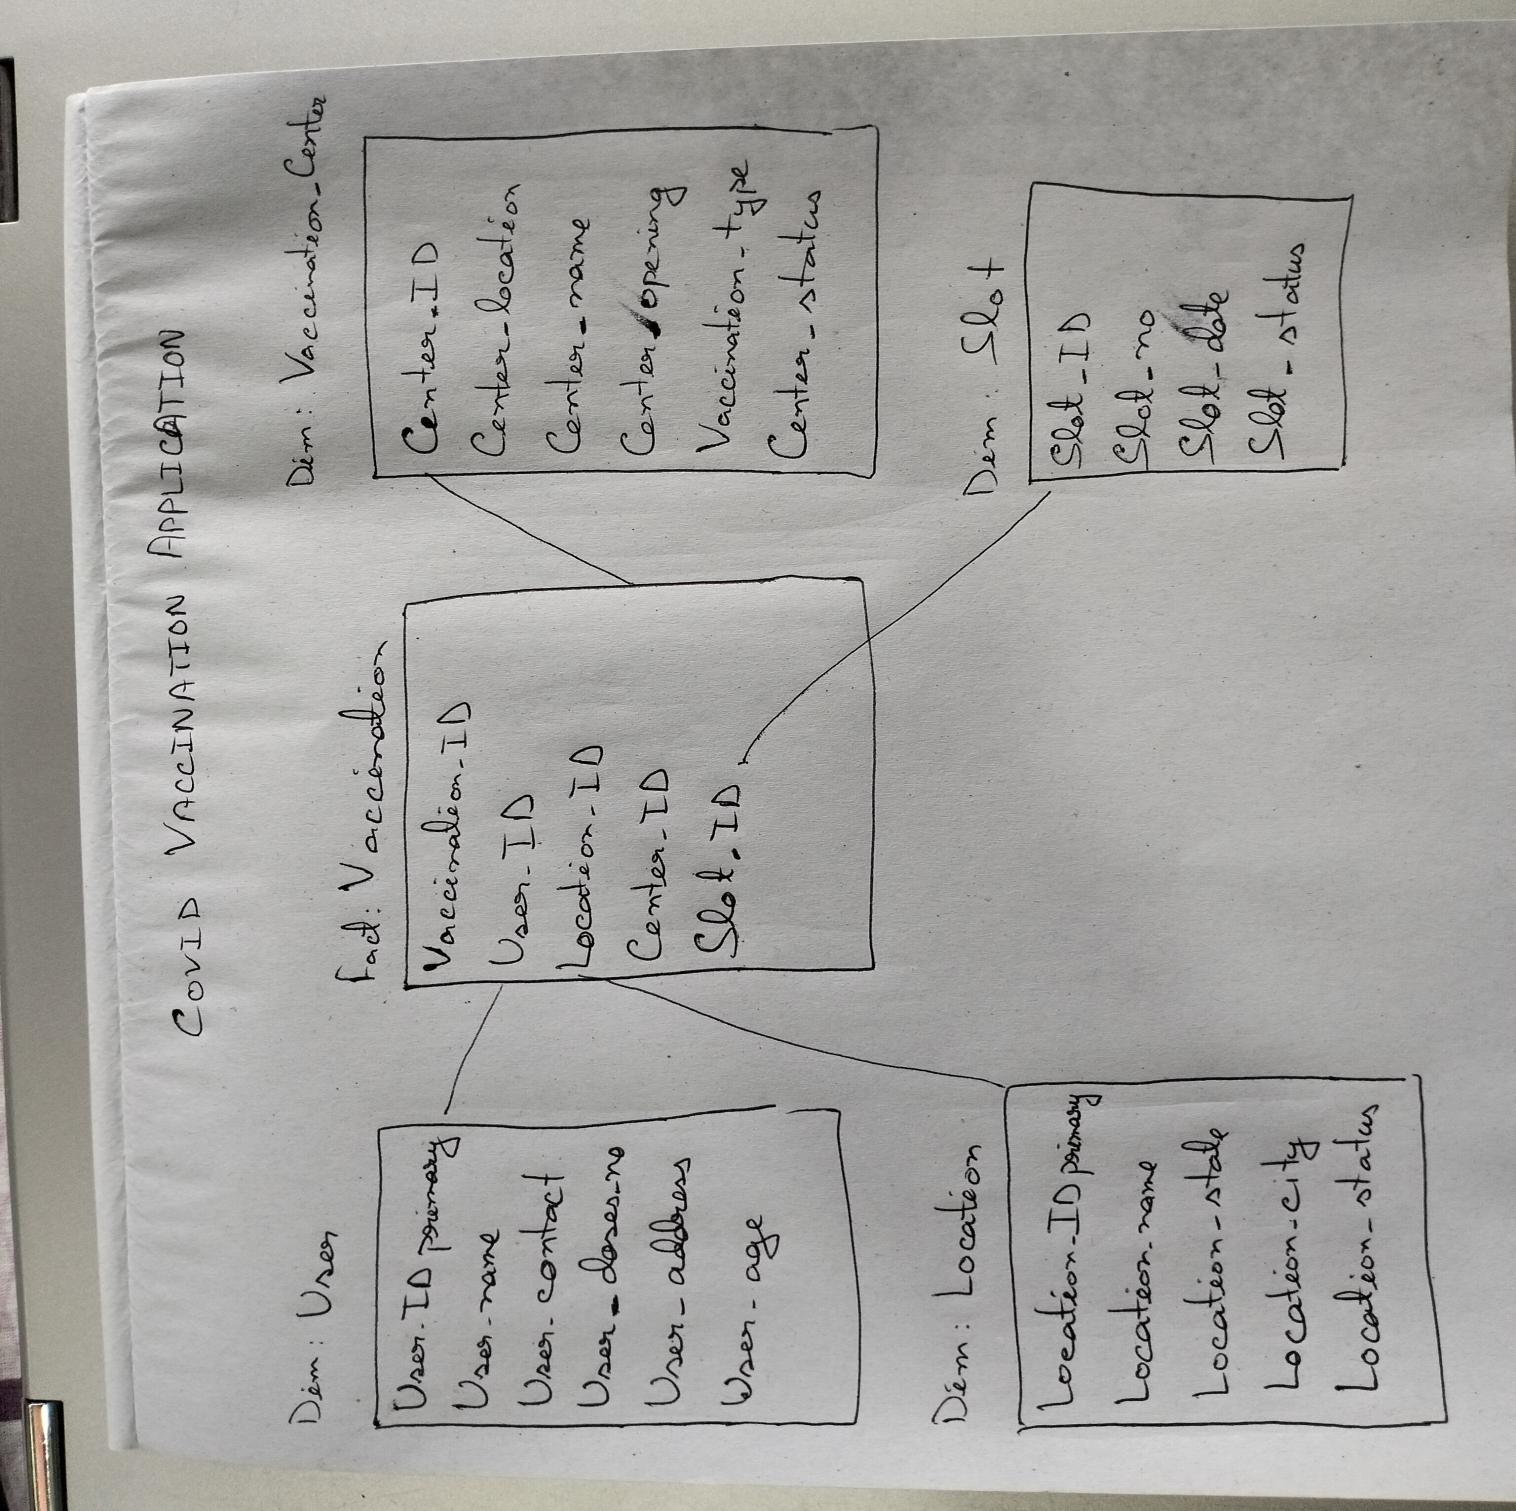 COVID VACCINATION APPLICATION
Dim: User
User-ID primary
User-name
User-contact
User-doses-no
User-address
User-age
Fact: Vaccination
Vaccination-ID
User-ID
Location-ID
Center-ID
Slot-ID
Dim: Vaccination-Center
Center-ID
Center-location
Center-name
Center opening
Vaccination-type
Center-status
Dim: Location
Location-ID primary
Location-name
Location-state
Location-city
Location-status
Dim: Slot
Slot-ID
Slot-no
Slot-date
Slot-status